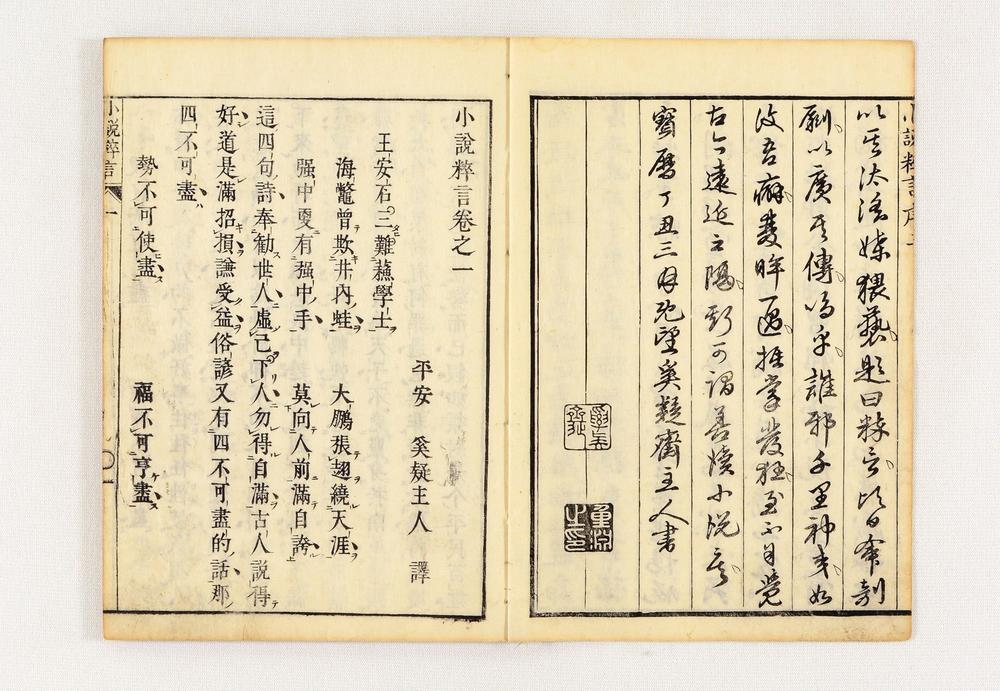 小說粹言序 二
以其汰淫媟猥褻題曰粹言此日命剞
劂以廣其傳嗚乎誰邪千里神交如
汝吾癖蔓眸邁推掌發狂至不自覺
古今遠近之隔斯可謂善讀小說哉
寶曆丁丑三月既望奚疑齋主人書
小說粹言卷之一
平安 奚疑主人 譯
王安石三難蘇學士
海鼈曾欺井內蛙 大鵬張翅繞天涯
强中更有强中手 莫向人前滿自誇
這四句詩奉勸世人虛己下人勿得自滿古人說得
好道是滿招損謙受益俗諺又有四不可盡的話那
四不可盡
勢不可使盡 福不可享盡
小說粹言 一